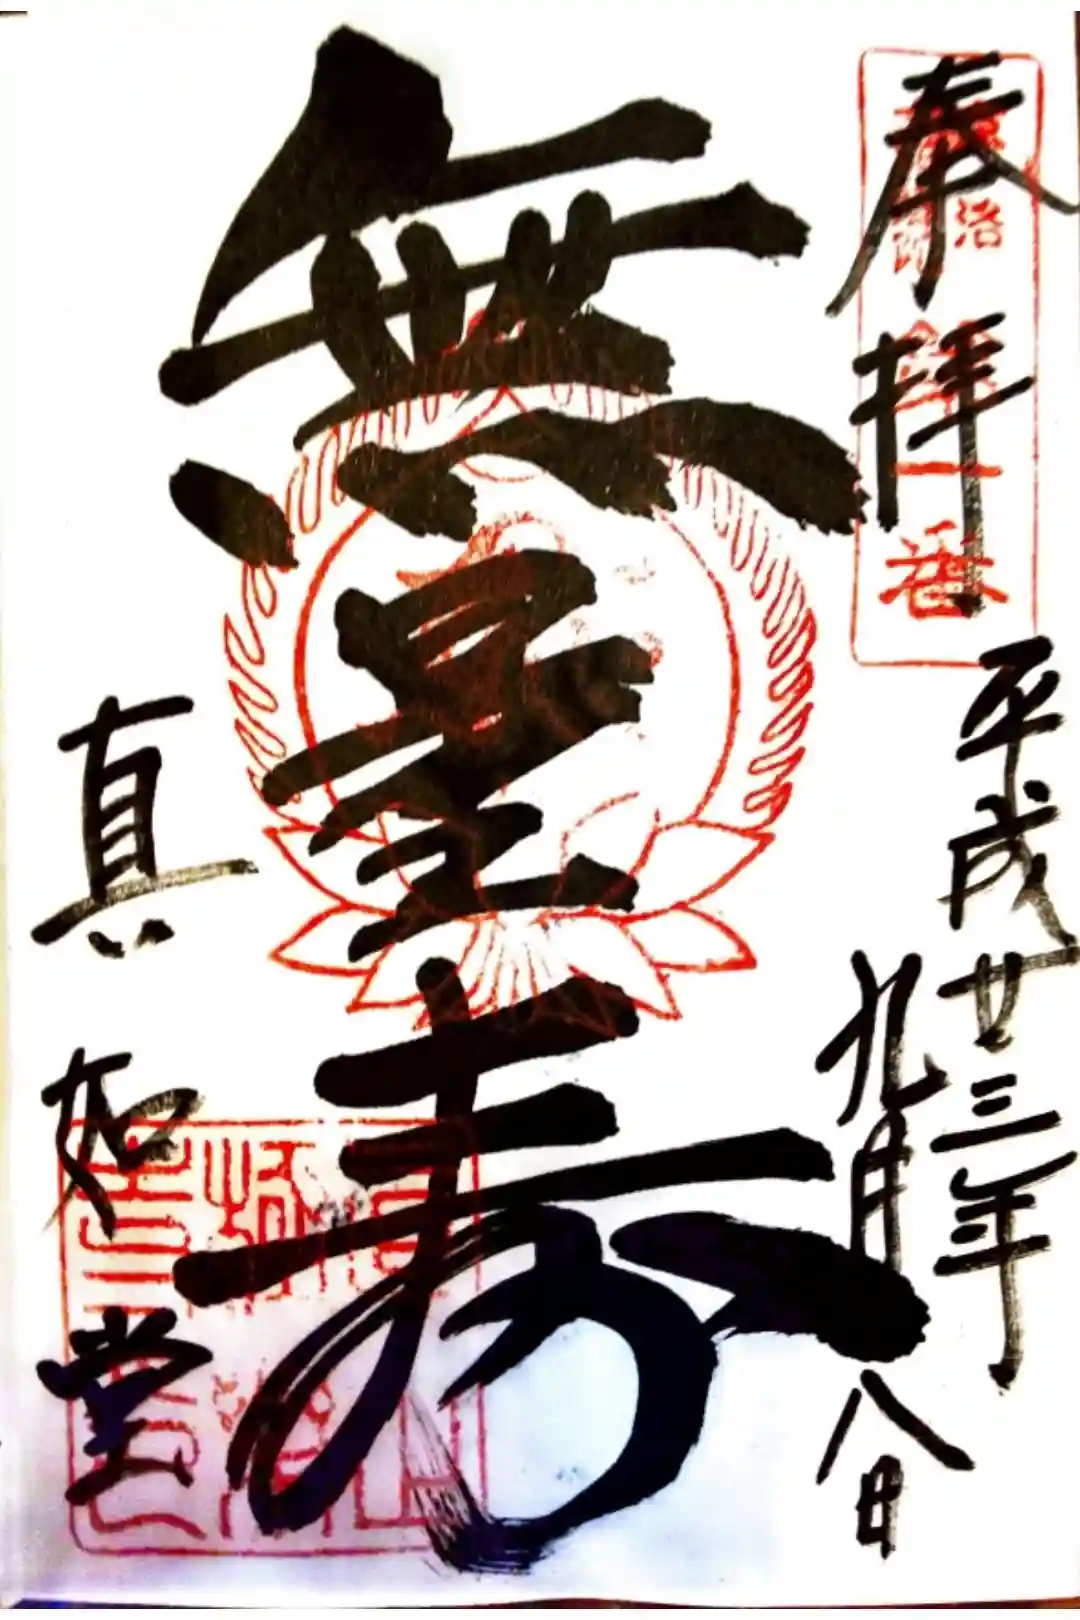 奉拝
平成廿三年
九月八日
無量寿
真如堂
第一番